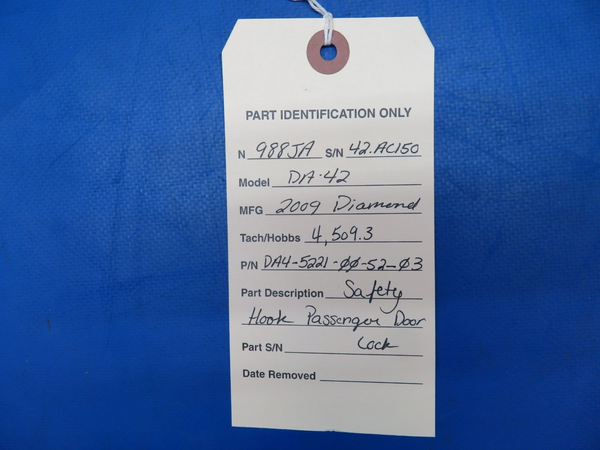 PART IDENTIFICATION ONLY
N 988JA S/N 42.AC150
Model DA-42
MFG 2009 Diamond
Tach/Hobbs 4,509.3
P/N DA4-5221-ØØ-52-Ø3
Part Description Safety
Hook Passenger Door
Part S/N Lock
Date Removed